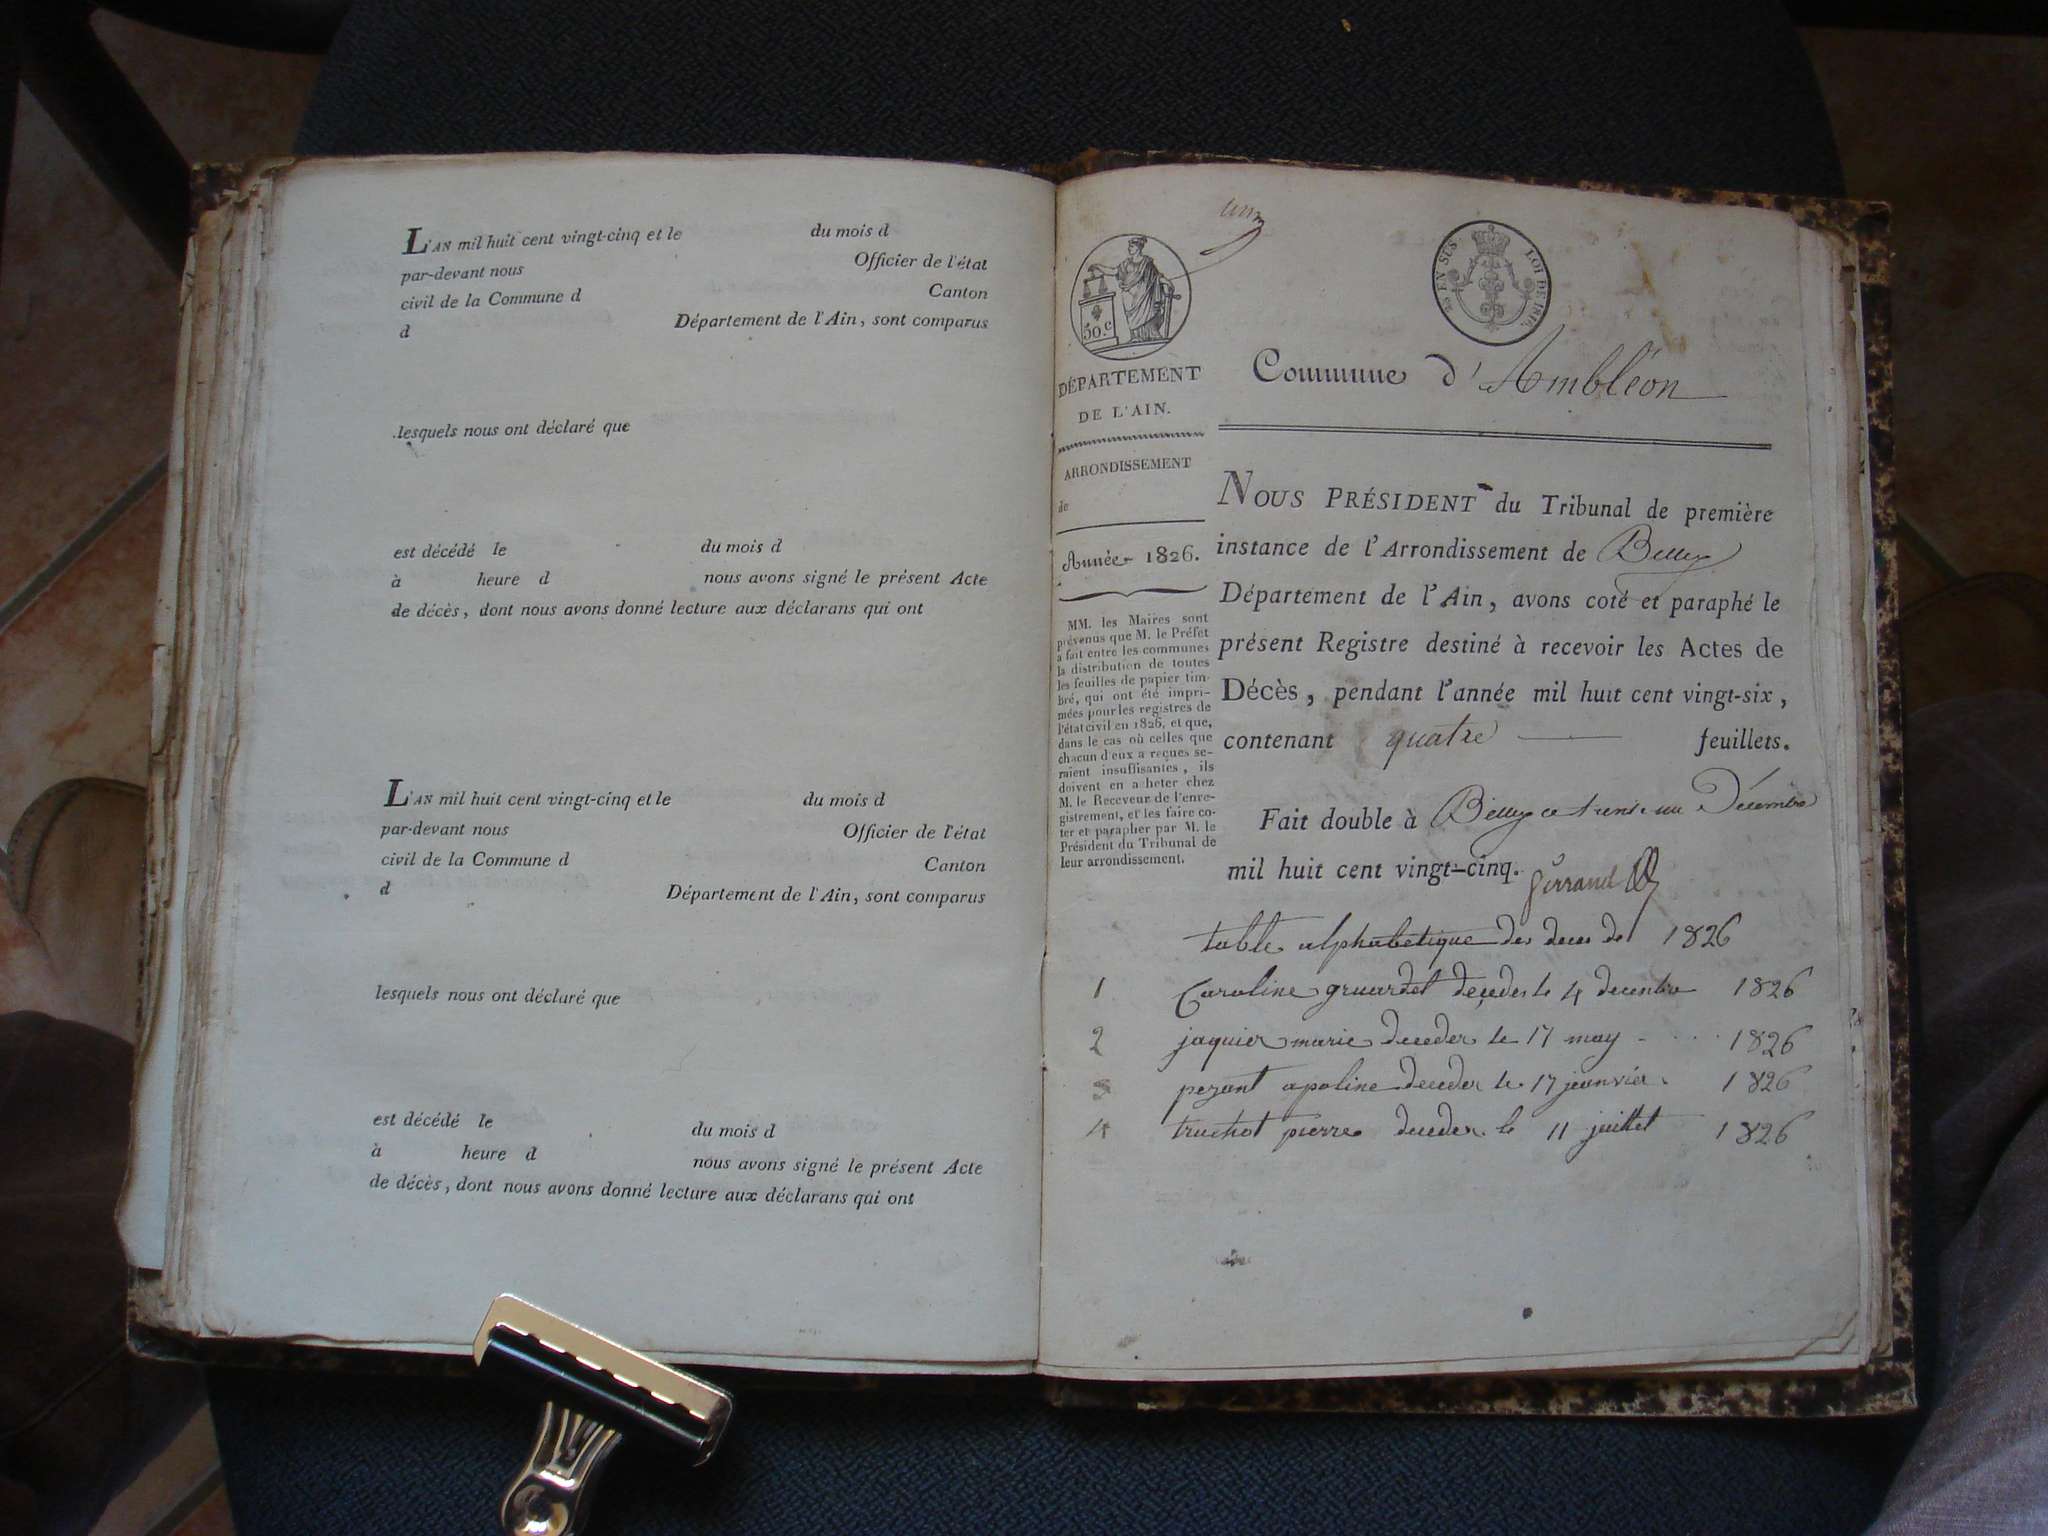 L'AN mil huit cent vingt-cinq et le du mois d
par-devant nous Officier de l'état
civil de la Commune d Canton
d Département de l'Ain, sont comparus
lesquels nous ont déclaré que
est décédé le du mois d
à heure d nous avons signé le présent Acte
de décès, dont nous avons donné lecture aux déclarans qui ont
L'AN mil huit cent vingt-cinq et le du mois d
par-devant nous Officier de l'état
civil de la Commune d Canton
d Département de l'Ain, sont comparus
lesquels nous ont déclaré que
est décédé le du mois d
à heure d nous avons signé le présent Acte
de décès, dont nous avons donné lecture aux déclarans qui ont
50 c
EN SUS. LOI DE 1816.
DÉPARTEMENT
DE L'AIN.
ARRONDISSEMENT
de
Année 1826.
MM. les Maires sont
prévenus que M. le Préfet
a fait entre les communes
la distribution de toutes
les feuilles de papier tim-
bré, qui ont été impri-
mées pour les registres de
l'état civil en 1826, et que,
dans le cas où celles que
chacun d'eux a reçues se-
raient insuffisantes, ils
doivent en a heter chez
M. le Receveur de l'enre-
gistrement, et les faire co-
ter et parapher par M. le
Président du Tribunal de
leur arrondissement.
Commune d'Ambléon
NOUS PRÉSIDENT du Tribunal de première
instance de l'Arrondissement de Belley
Département de l'Ain, avons coté et paraphé le
présent Registre destiné à recevoir les Actes de
Décès, pendant l'année mil huit cent vingt-six,
contenant quatre feuillets.
Fait double à Belley ce trente un Décembre
mil huit cent vingt-cinq.
table alphabetique des deces de 1826
1 Caroline gruardet decedes le 4 decembre 1826
2 jaquier marie deceder le 17 may 1826
3 pezant apoline deceder le 17 jeanvier 1826
4 truchot pierre deceder le 11 juillet 1826